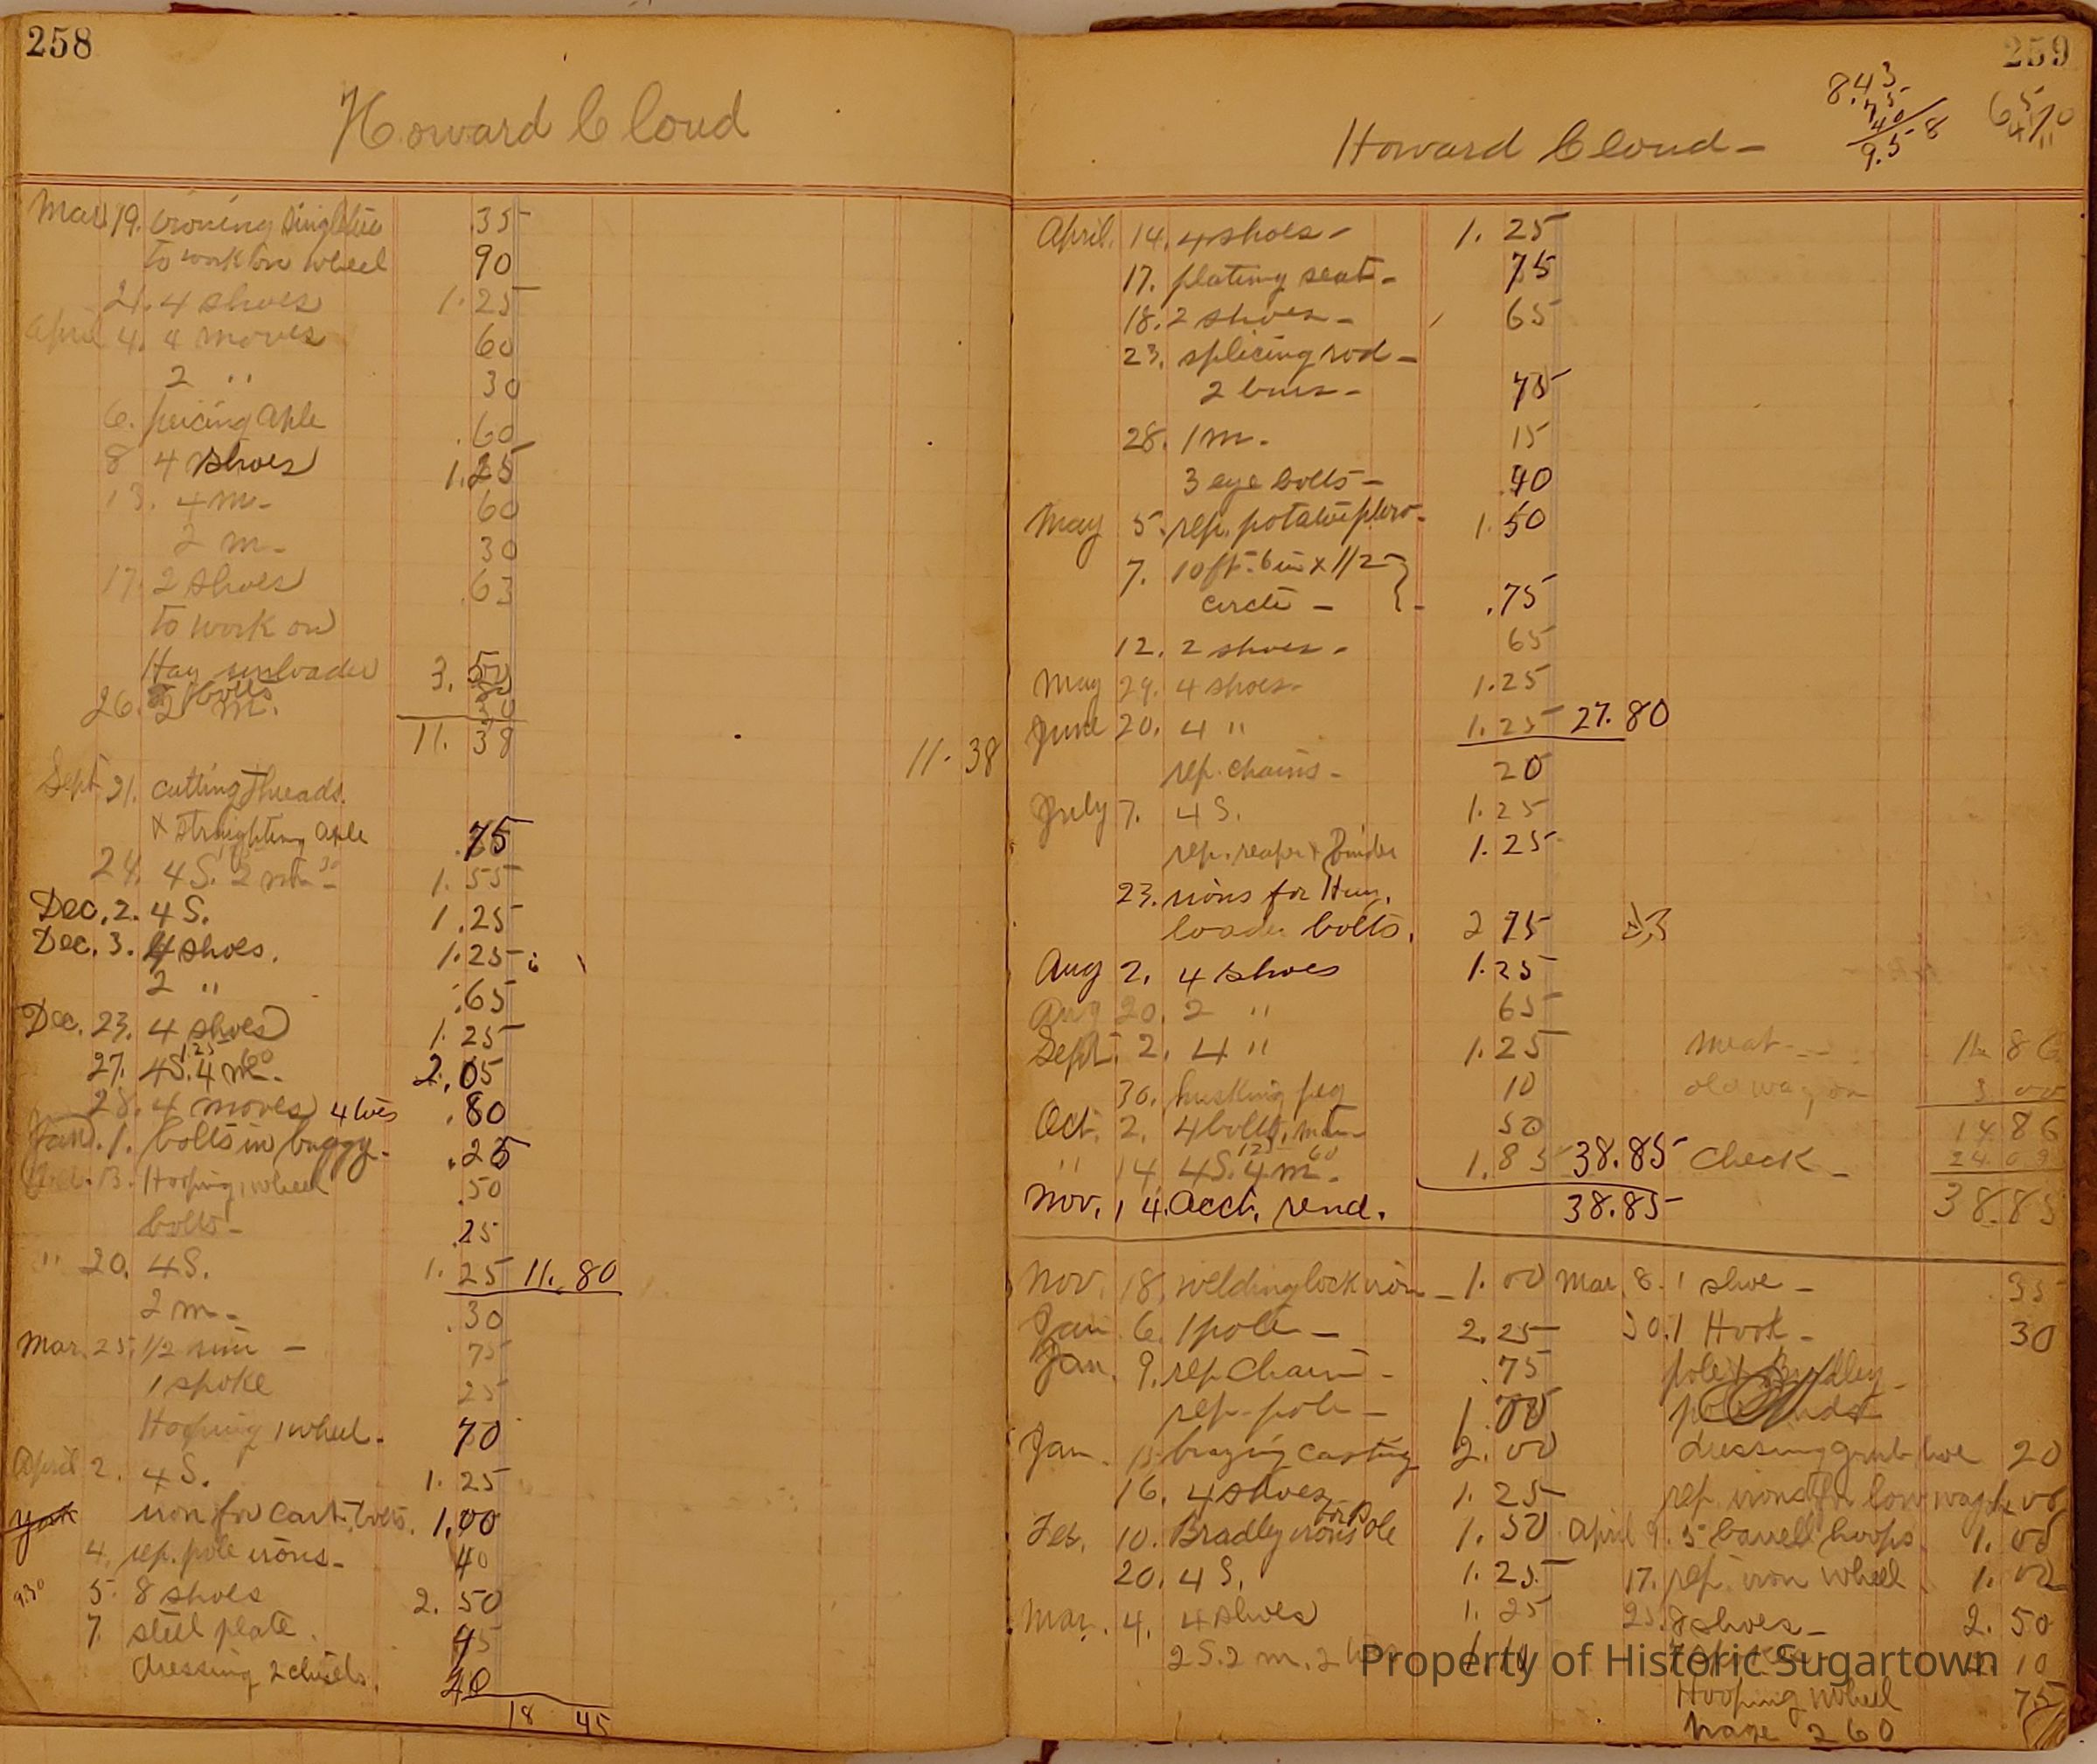 258
Howard Cloud
Mar. 19. ironing singletree .35
to work on wheel 90
21. 4 shoes 1.25
April 4. 4 moves 60
2 " 30
6. peicing axle .60
8 4 shoes 1.25
13. 4 m. 60
2 m. 30
17. 2 shoes .63
to work on
Hay unloader 3.50
bolts
26. 2 m. 30
11.38
11.38
Sept 21. cutting threads
& straighting axle .75
24. 4 S. 2 m. 30 1.55
Dec. 2. 4 S. 1.25
Dec. 3. 4 shoes. 1.25
2 " .65
Dec. 23. 4 shoes 1.25
27. 4S. 1.25 4 m. 60 2.05
28. 4 moves 4 toes .80
Jan. 1. bolts in buggy. .25
13. Hooping 1 wheel .50
bolts .25
" 20. 4 S. 1.25 11.80
2 m. .30
Mar. 25. 1/2 rim 75
1 spoke 25
Hooping 1 wheel. 70
April 2. 4 S. 1.25
iron for cart. bolts. 1.00
4. rep. pole irons 40
9.30 5. 8 shoes 2.50
7. steel plate. 45
dressing 2 chisels. 40
18 45
259
8.43
.75
40
9.58
65
Howard Cloud
April. 14. 4 shoes 1.25
17. plating seat 75
18. 2 shoes 65
23. splicing rod
2 burs 75
28. 1 m. 15
3 eye bolts .40
May 5. rep. potatoe plow 1.50
7. 10 ft. 6 in x 1/2
circle .75
12. 2 shoes 65
May 29. 4 shoes 1.25
June 20. 4 " 1.25 27.80
rep. chains 20
July 7. 4 S. 1.25
rep. reaper & Binder 1.25
23. irons for Hay.
loader bolts. 2 75
Aug 2. 4 shoes 1.25
Aug 20. 2 " 65
Sept. 2. 4 " 1.25 meat 11.86
30. husking peg 10 old wagon 3.00
Oct. 2. 4 bolts, 50 14.86
" 14 4S. 1.25 4 m. 60 1.85 38.85 check 24.09
Nov. 14. acct. rend. 38.85 38.85
Nov. 18. welding lock iron 1.00
Jan 6. 1 pole 2.25
Jan. 9. rep chain .75
rep. pole 1.00
Jan. brazing casting 2.00
16. 4 shoes 1.25
Feb. 10. Bradley irons for Pole 1.50
20. 4 S. 1.25
Mar. 4. 4 shoes 1.25
2 S. 2 m. 2 toes
Mar. 8. 1 shoe .35
30. 1 Hook 30
pole Bradley
dressing grub hoe 20
rep. irons for low wagon 1.00
April 9. 5 barrell hoops. 1.00
17. rep. iron wheel 1.00
25. 8 shoes 2.50
10
Hooping wheel 75
page 260
Property of Historic Sugartown